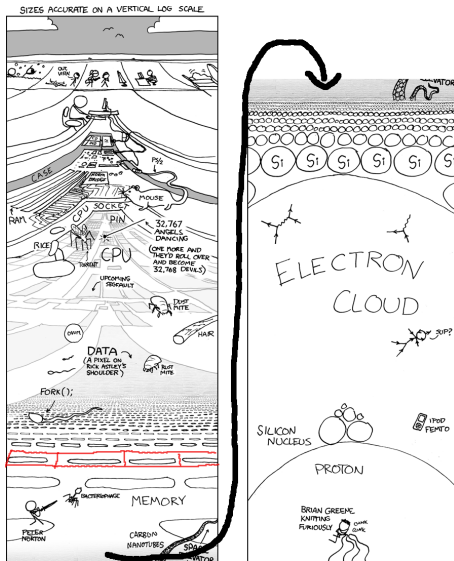 SIZES ACCURATE ON A VERTICAL LOG SCALE
CASE
PS/2
MOUSE
RAM
CPU SOCKET
PIN
32,767
ANGELS
DANCING
(ONE MORE AND
THEY'D ROLL OVER
AND BECOME
32,768 DEVILS)
RICE
CPU
TORRENT
UPCOMING
SEGFAULT
DUST
MITE
OVUM
HAIR
DATA
(A PIXEL ON
RICK ASTLEY'S
SHOULDER)
MITE
FORK();
BACTERIOPHAGE
MEMORY
PETER
NORTON
CARBON
NANOTUBES
SPACE
ELEVATOR
VATOR
Si Si Si Si Si
ELECTRON
CLOUD
SUP?
SILICON
NUCLEUS
IPOD
FEMTO
PROTON
BRIAN GREENE
KNITTING
FURIOUSLY